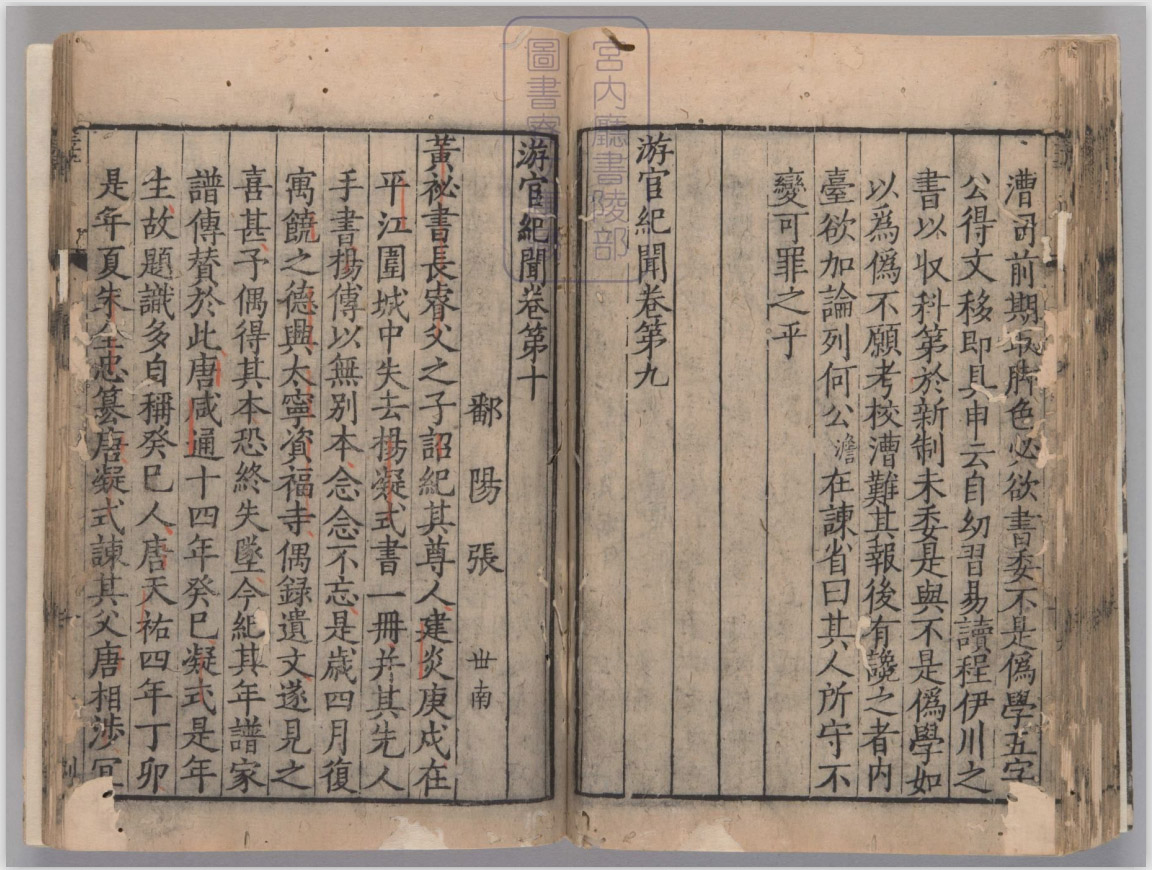 漕司前期取脚色必欲書委不是僞學五字
公得文移即具申云自㓜習易讀程伊川之
書以収科第於新制未委是與不是僞學如
以爲僞不願考校漕難其報後有讒之者内
臺欲加論列何公澹在諫省曰其人所守不
變可罪之乎
游宦紀聞卷第九
游宦紀聞卷第十
鄱陽張丗南
黃祕書長睿父之子詔紀其尊人建炎庚戍在
平江圍城中失去楊凝式書一冊并其先人
手書楊傳以無別本念念不忘是歳四月復
寓饒之德興太寧資福寺偶録遺文遂見之
喜甚予偶得其本恐終失墜今紀其年譜家
譜傳賛於此唐咸通十四年癸巳凝式是年
生故題識多自稱癸巳人唐天祐四年丁卯
是年夏朱全忠簒唐凝式諫其父唐相渉冝
宮内廳書陵部
圖書寮